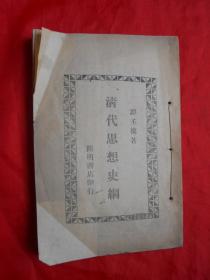 譚丕模著
清代思想史綱
開明書店印行